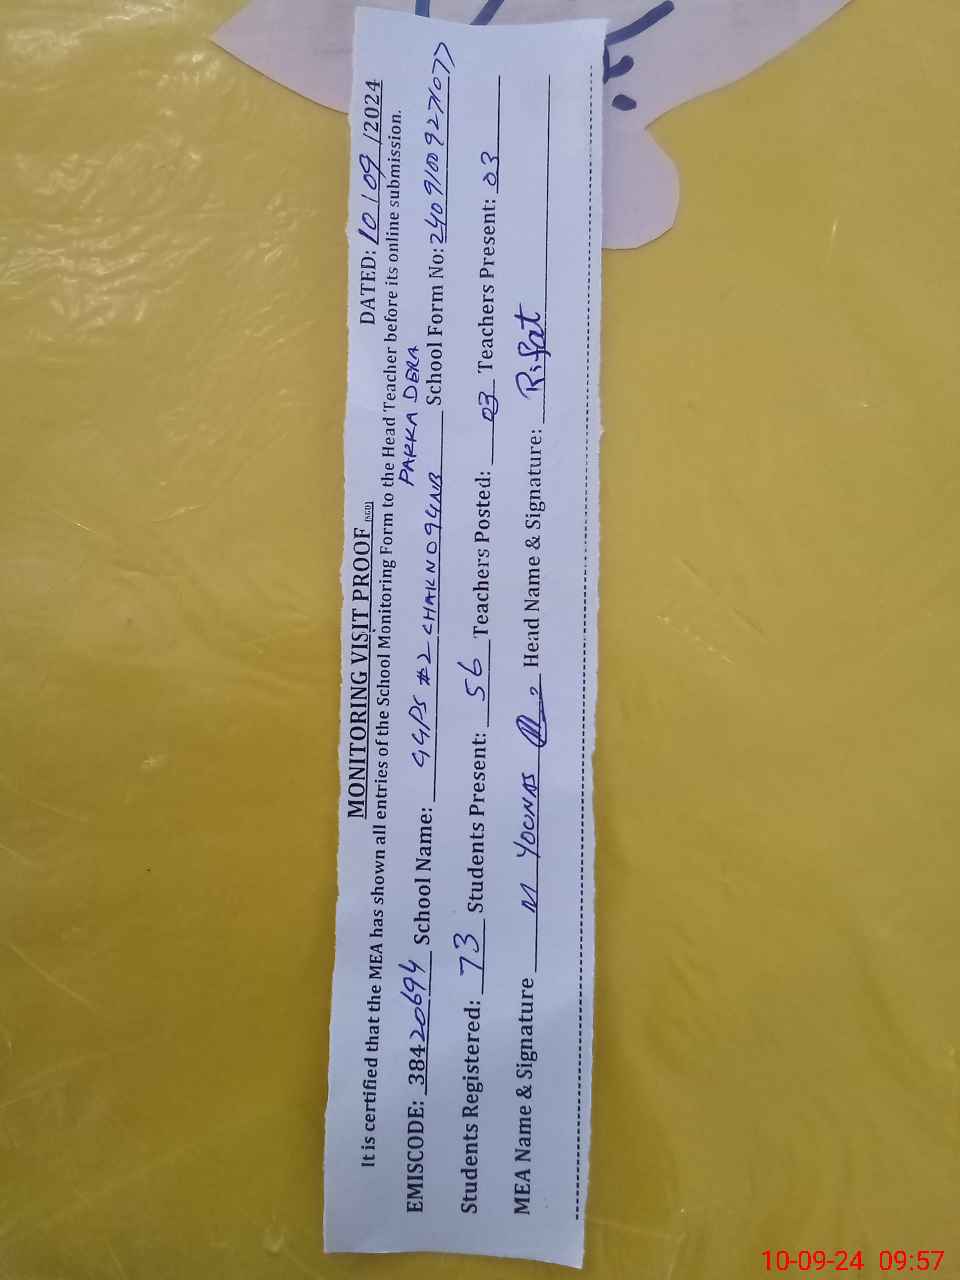 MONITORING VISIT PROOF (SGD)
DATED: 10/09/2024
It is certified that the MEA has shown all entries of the School Monitoring Form to the Head Teacher before its online submission.
PAKKA DERA
EMISCODE: 38420694 School Name: GGPS #2 CHAK NO 94NB School Form No: 2409100927107777
Students Registered: 73 Students Present: 56 Teachers Posted: 03 Teachers Present: 03
MEA Name & Signature M YOUNAS Head Name & Signature: Rifat
10-09-24 09:57